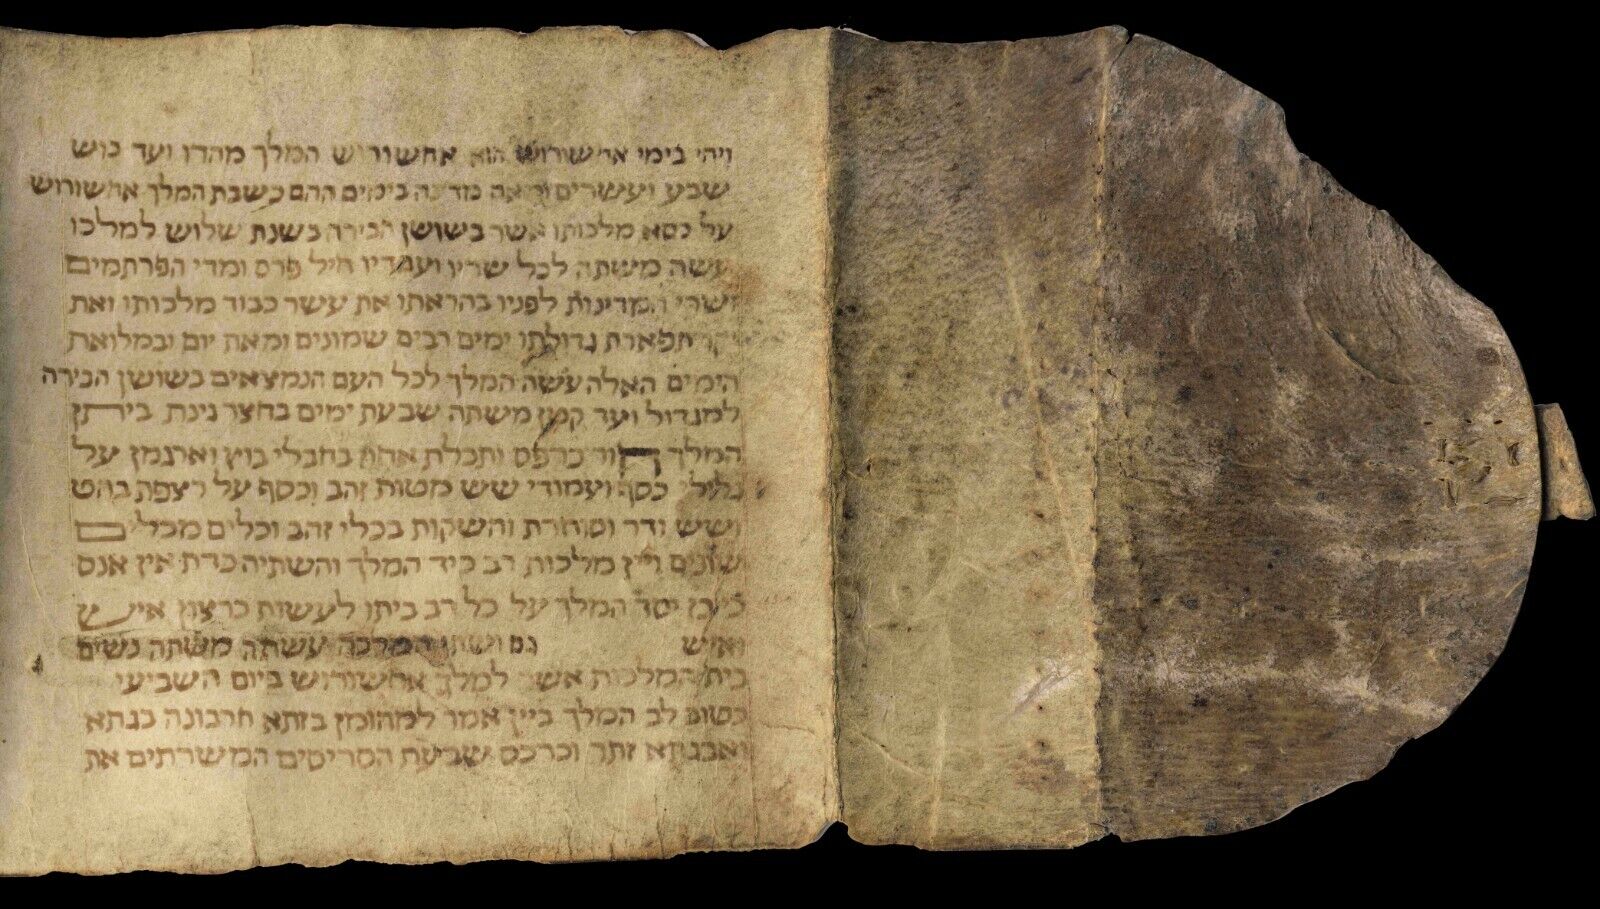 ויהי בימי אחשורוש הוא אחשורוש המלך מהדו ועד כוש
שבע ועשרים ומאה מדינה בימים ההם כשבת המלך אחשורוש
על כסא מלכותו אשר בשושן הבירה בשנת שלוש למלכו
עשה משתה לכל שריו ועבדיו חיל פרס ומדי הפרתמים
ושרי המדינות לפניו בהראתו את עשר כבוד מלכותו ואת
יקר תפארת גדולתו ימים רבים שמונים ומאת יום ובמלואת
הימים האלה עשה המלך לכל העם הנמצאים בשושן הבירה
למגדול ועד קטן משתה שבעת ימים בחצר גינת ביתן
המלך חור כרפס ותכלת אחוז בחבלי בוץ וארגמן על
גלילי כסף ועמודי שש מטות זהב וכסף על רצפת בהט
ושש ודר וסוחרת והשקות בכלי זהב וכלים מכלים
שונים ויין מלכות רב כיד המלך והשתיה כדת אין אנס
כי כן יסד המלך על כל רב ביתו לעשות כרצון איש
ואיש גם ושתי המלכה עשתה משתה נשים
בית המלכות אשר למלך אחשורוש ביום השביעי
כטוב לב המלך ביין אמר למהומן בזתא חרבונה בגתא
ואבגתא זתר וכרכס שבעת הסריסים המשרתים את